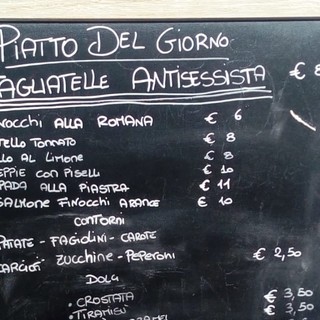 PIATTO DEL GIORNO
TAGLIATELLE ANTISESSISTA € 8
NOCCHI ALLA ROMANA € 6
TELLO TONNATO € 8
LLO AL LIMONE € 8
EPPIE CON PISELLI € 10
SPADA ALLA PIASTRA € 11
SALMONE FINOCCHI ARANCE € 10
CONTORNI
PATATE - FAGIOLINI - CAROTE
CARCIOFI ZUCCHINE - PEPERONI € 2,50
DOLCI
• CROSTATA € 3,50
• TIRAMISU € 3,50